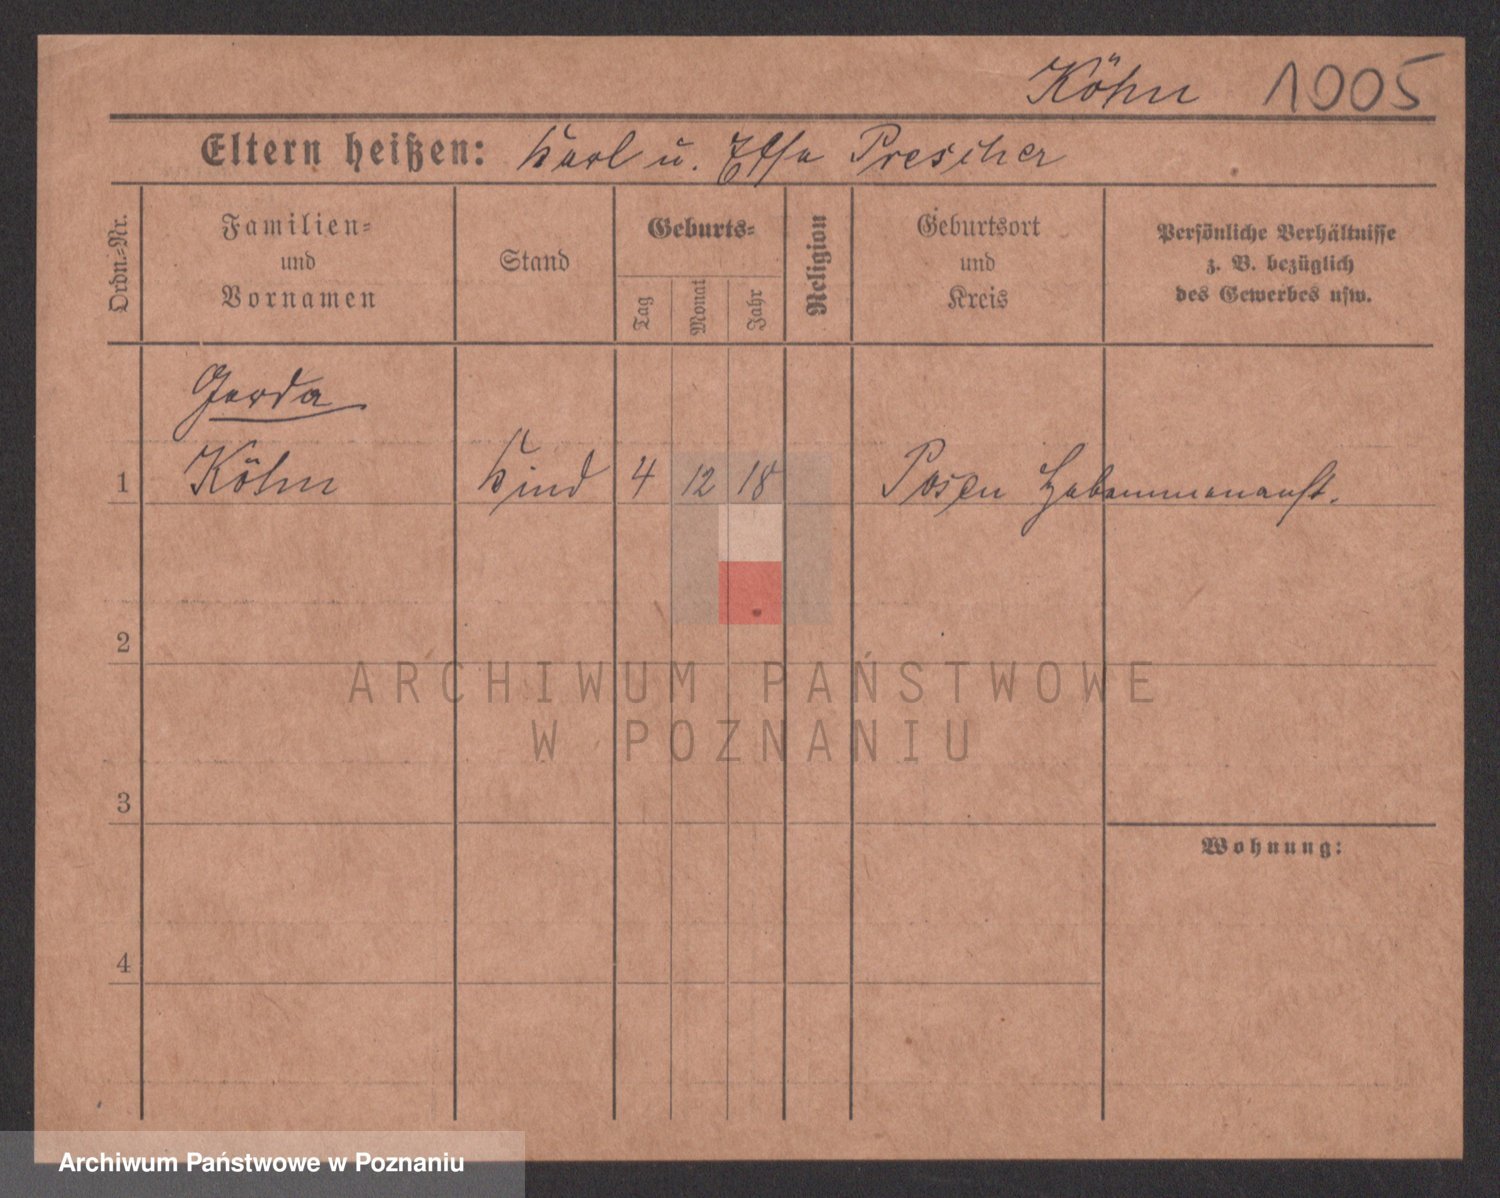 Köhn 1005
Eltern heißen: Karl u. Elsa Prescher
Ordn.-Nr.
Familien-
und
Vornamen
Stand
Geburts-
Tag
Monat
Jahr
Religion
Geburtsort
und
Kreis
Persönliche Verhältnisse
z. B. bezüglich
des Gewerbes usw.
Gerda
1 Köhn Kind 4 12 18 Posen Hebammenanst.
2
3
Wohnung:
4
ARCHIWUM PAŃSTWOWE
W POZNANIU
Archiwum Państwowe w Poznaniu